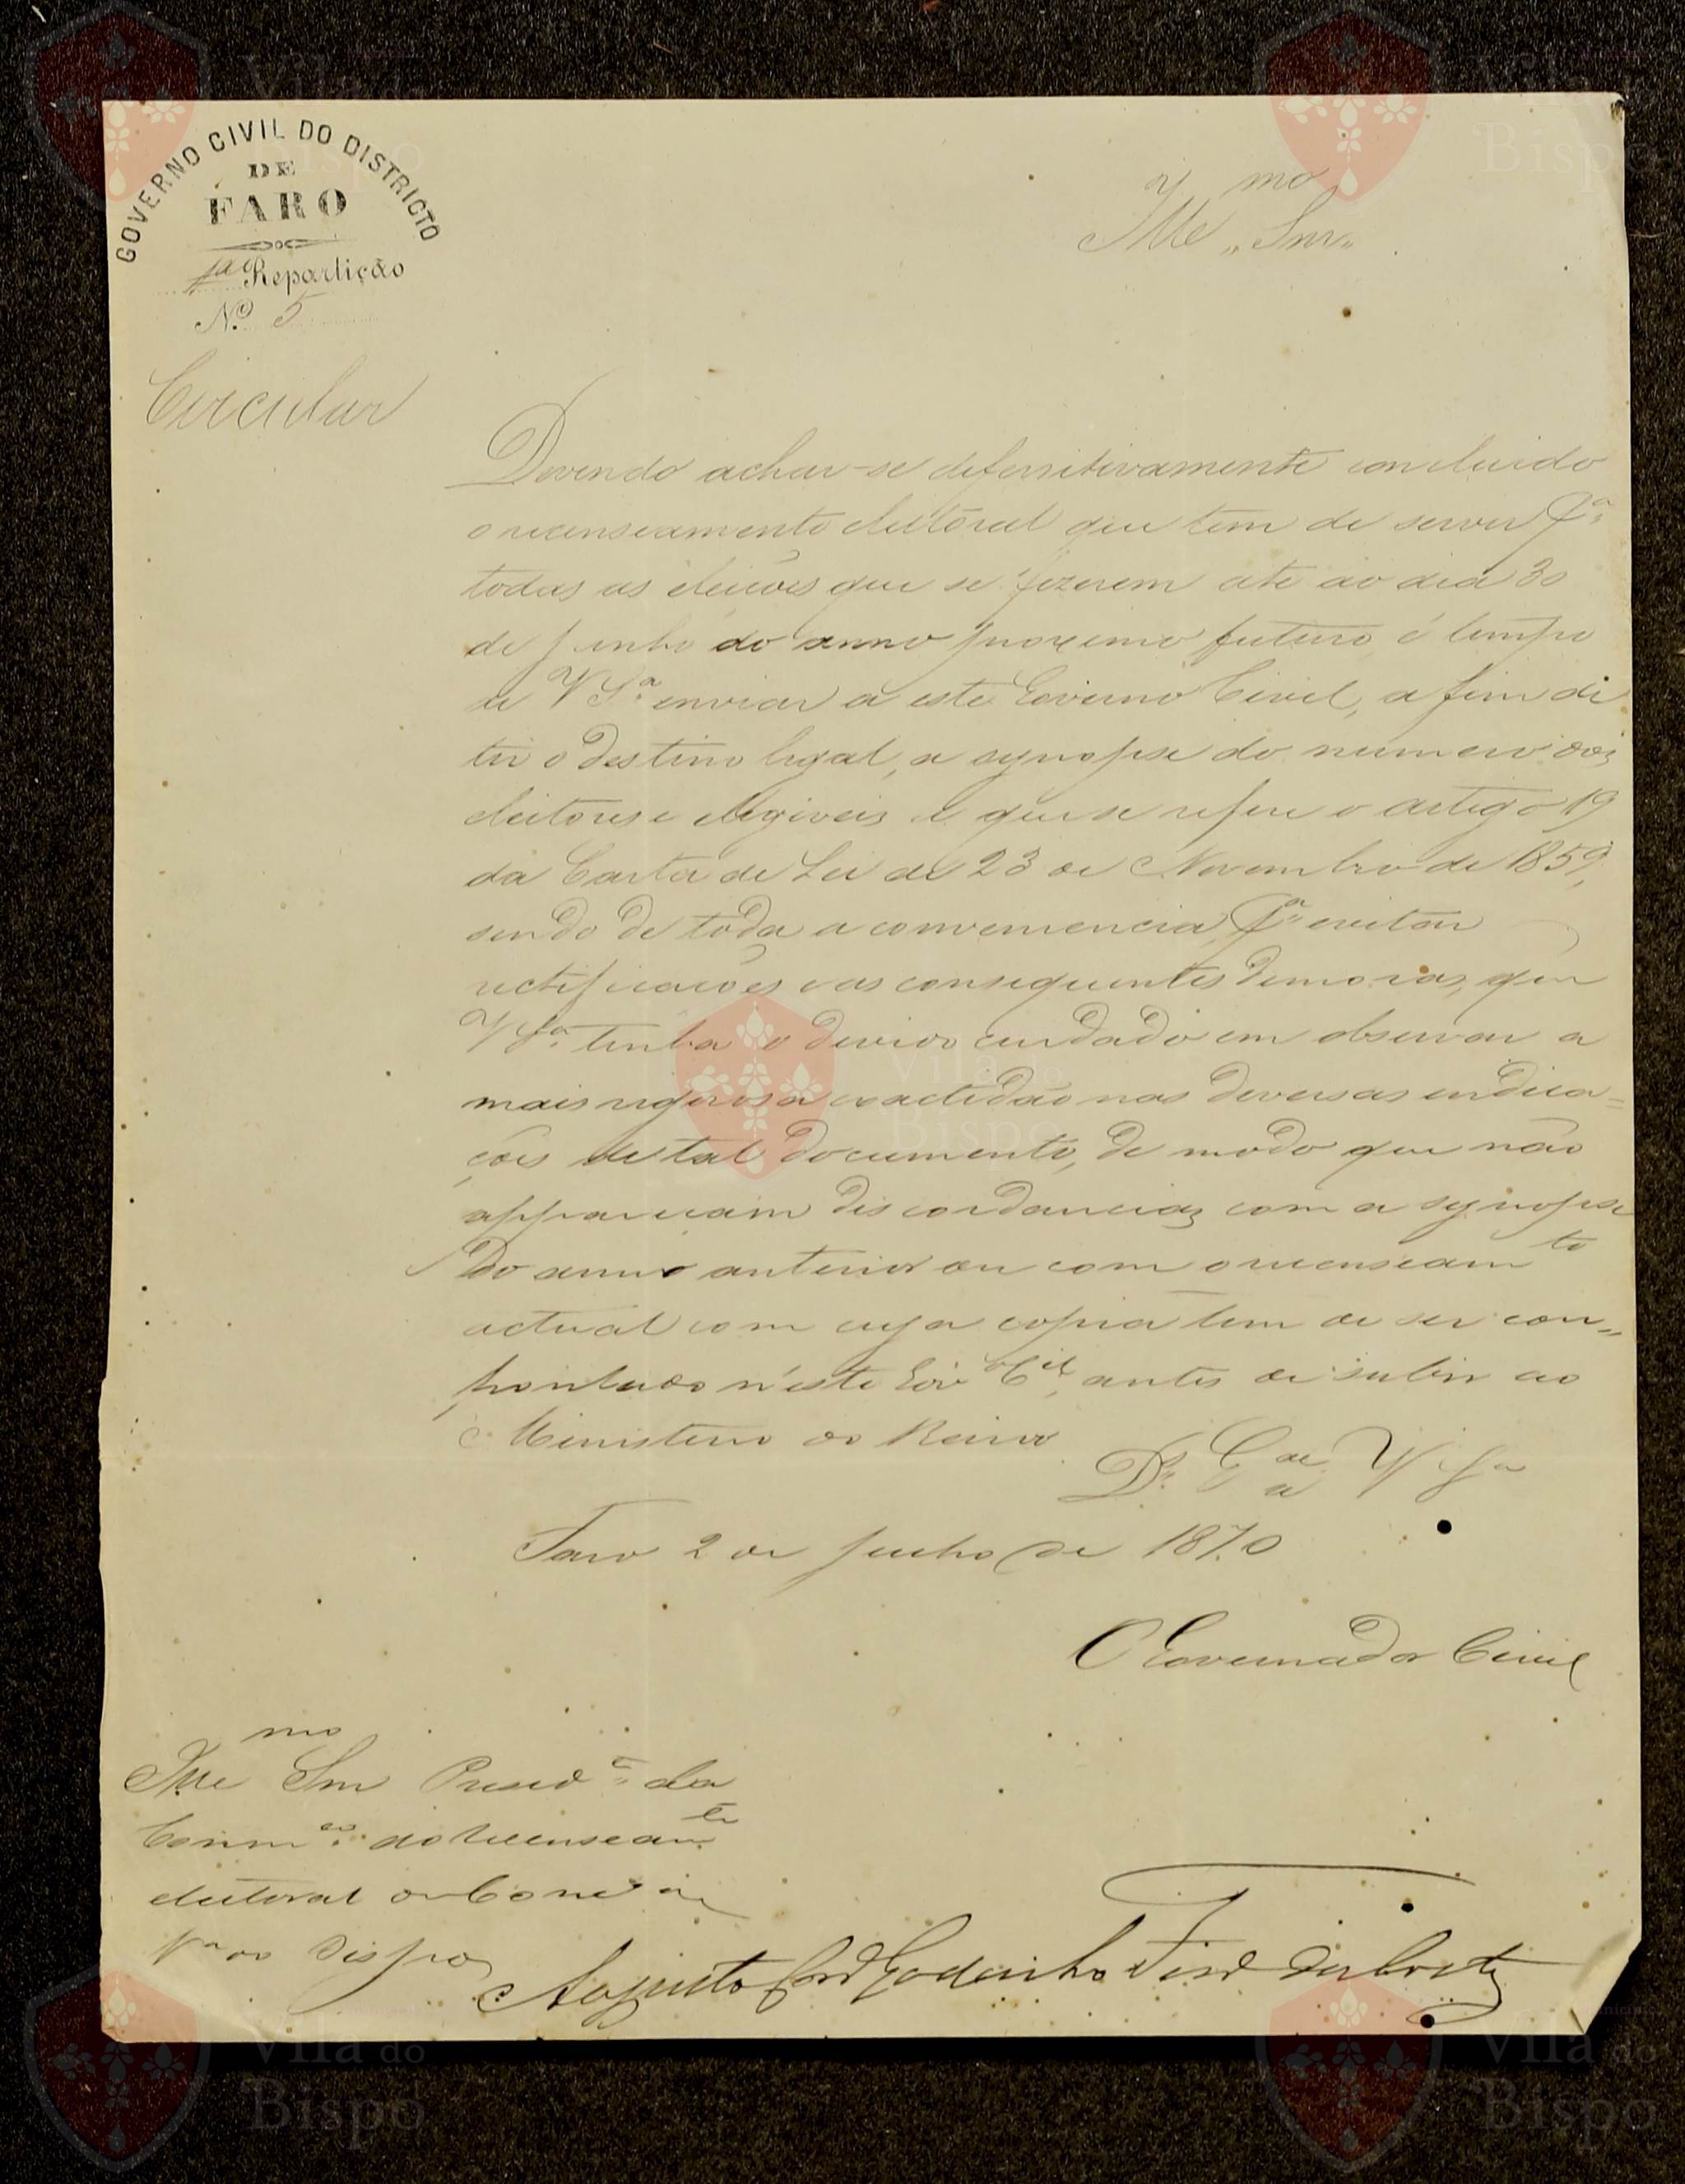 GOVERNO CIVIL DO DISTRICTO
DE
FARO
1ª Repartição
N.º 5
Illmo Snr
Circular
Devendo achar-se definitivamente concluido
o recenseamento eleitoral que tem de servir Pª
todas as eleições que se fizerem até ao dia 30
de junho do anno proximo futuro, é tempo
de V Sª enviar a este Governo Civil, a fim de
ter o destino legal, a synopse do numero dos
eleitores e elegiveis a que se refere o artigo 19
da Carta de Lei de 23 de Novembro de 1859,
sendo de toda a conveniencia, Pª evitar
rectificações e as consequentes demoras, que
V Sª tenha o devido cuidado em observar a
mais rigorosa exactidão nas diversas indica=
ções de tal documento, de modo que não
appareçam discordancias com a synopse
do anno anterior ou com o recenseamto
actual com cuja copia tem de ser con„
frontado n'este Govo Cil, antes de subir ao
Ministerio do Reino
Ds. Gde a V Sª
Faro 2 de julho de 1870
O Governador Civil
Illmo Snr Presid.e da
Comm.ão do recenseamto
eleitoral do Conc.º de
Vª do Bispo
Augusto Godinho da Costa
Vila do
Bispo